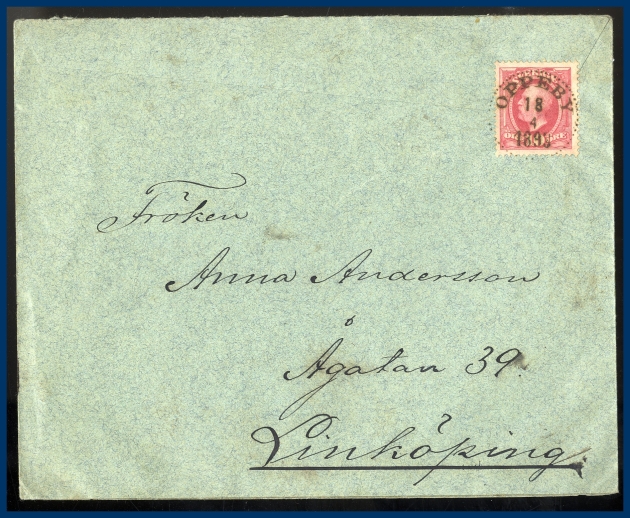 OPPEBY
18
4
Fröken
Anna Andersson
Ågatan 39.
Linköping.